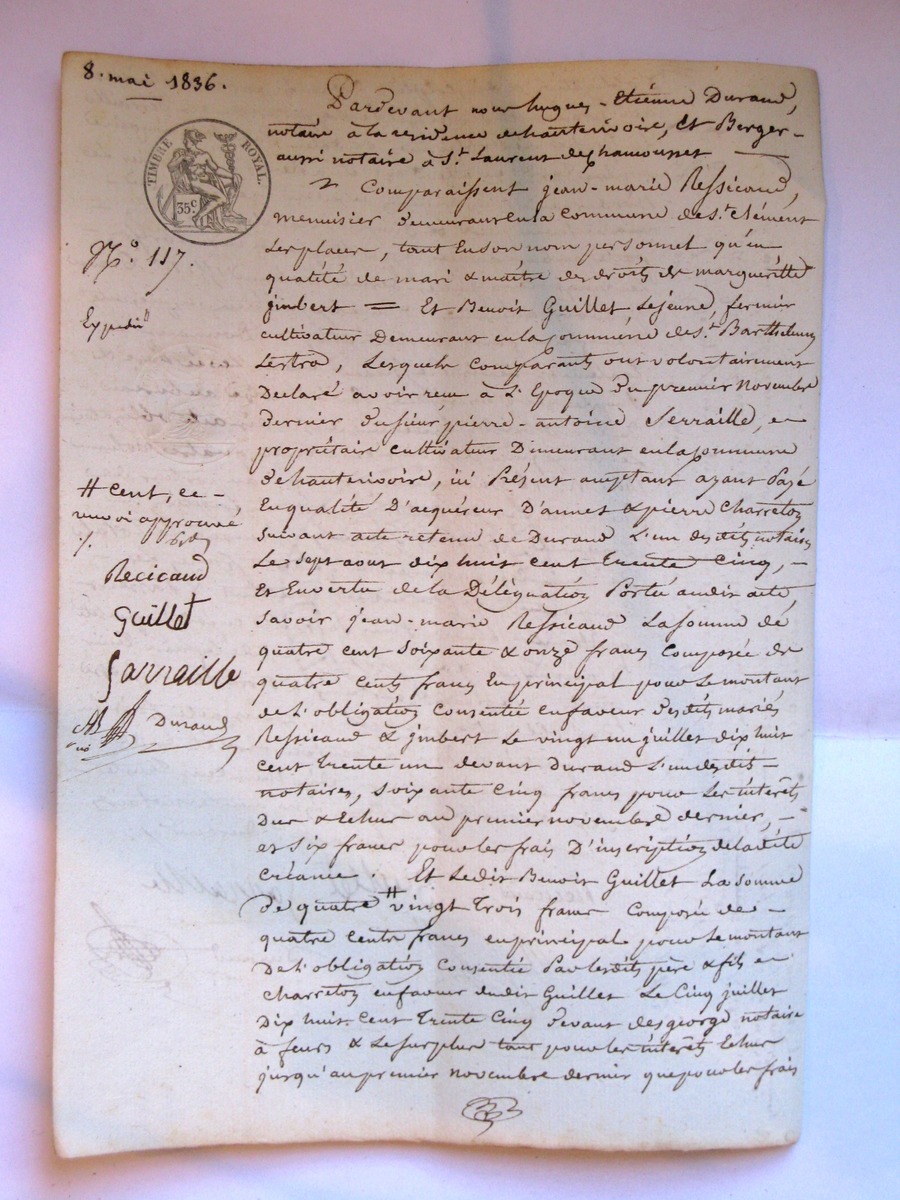 8. mai 1836.
Pardevant nous hugues-Etienne Durand,
notaire à la residence dehauterivoire, Et Berger-
aussi notaire à St. Laurent de chamousset
TIMBRE ROYAL.
35c
Comparaissent jean-marie Ressicaud,
menuisier demeurant En la Commune de St. clément
Les places, tant En son nom personnel qu'en
No. 117.
qualité de mari & maître des droits de marguéritte
jmbert = Et Benoit Guillet Lejeune, fermier
Expedié
cultivateur Demeurant en la commune de St. Barthelemy
Lestra, Lesquels comparants ont volontairement
Déclaré avoir recu à L'Epoque du premier Novembre
dernier du sieur pierre-antoine Serraille,
propriétaire cultivateur Demeurant en la commune
dehauterivoire, ici Présent acceptant ayant Payé
# cent, ce -
renvoi approuvé
En qualité D'acquéreur D'annet & pierre Charreton
suivant acte retenu de Durand L'un desdits notaires
Le sept aout dix huit cent trente cinq, -
Recicaud
Et En vertu de la Délégation Portée audit acte
Guillet
savoir jean-marie Ressicaud La somme de
quatre cent soixante & onze francs Composée de
Sarraille
quatre cents francs En principal pour Le montant
Durand
de L'obligation Consentie en faveur desdits mariés
Ressicaud & jmbert Le vingt un juillet dix huit
cent trente un devant Durand L'un desdits -
notaires, soixante Cinq francs pour Les intérêts
Dus & Echus au premier novembre dernier, -
et six francs pour les frais D'inscription de ladite
créance. Et Ledit Benoit Guillet La somme
de quatre # vingt Trois francs Composée de -
quatre cents francs en principal pour Le montant
de L'obligation Consentie Par lesdits père & fils
Charreton en faveur dudit Guillet Le Cinq juillet
Dix huit Cent Trente Cinq devant desgeorge notaire
à feurs & Le surplus tant pour les intérêts Echus
jusqu'au premier novembre dernier que pour les frais